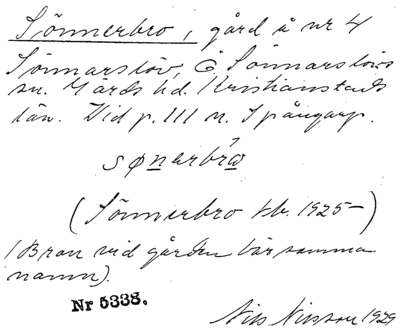 Sönnerbro, gård å nr 4
Sönnarslöv, Ö. Sönnarslövs
sn. Gärds hd. Kristianstads
län. Vid p. 111 n. Spångarp.
sønerbrω
(Sönnerbro kb. 1925–)
(Bron vid gården bär samma
namn).
Nr 5338.
Nils Nilsson 1929